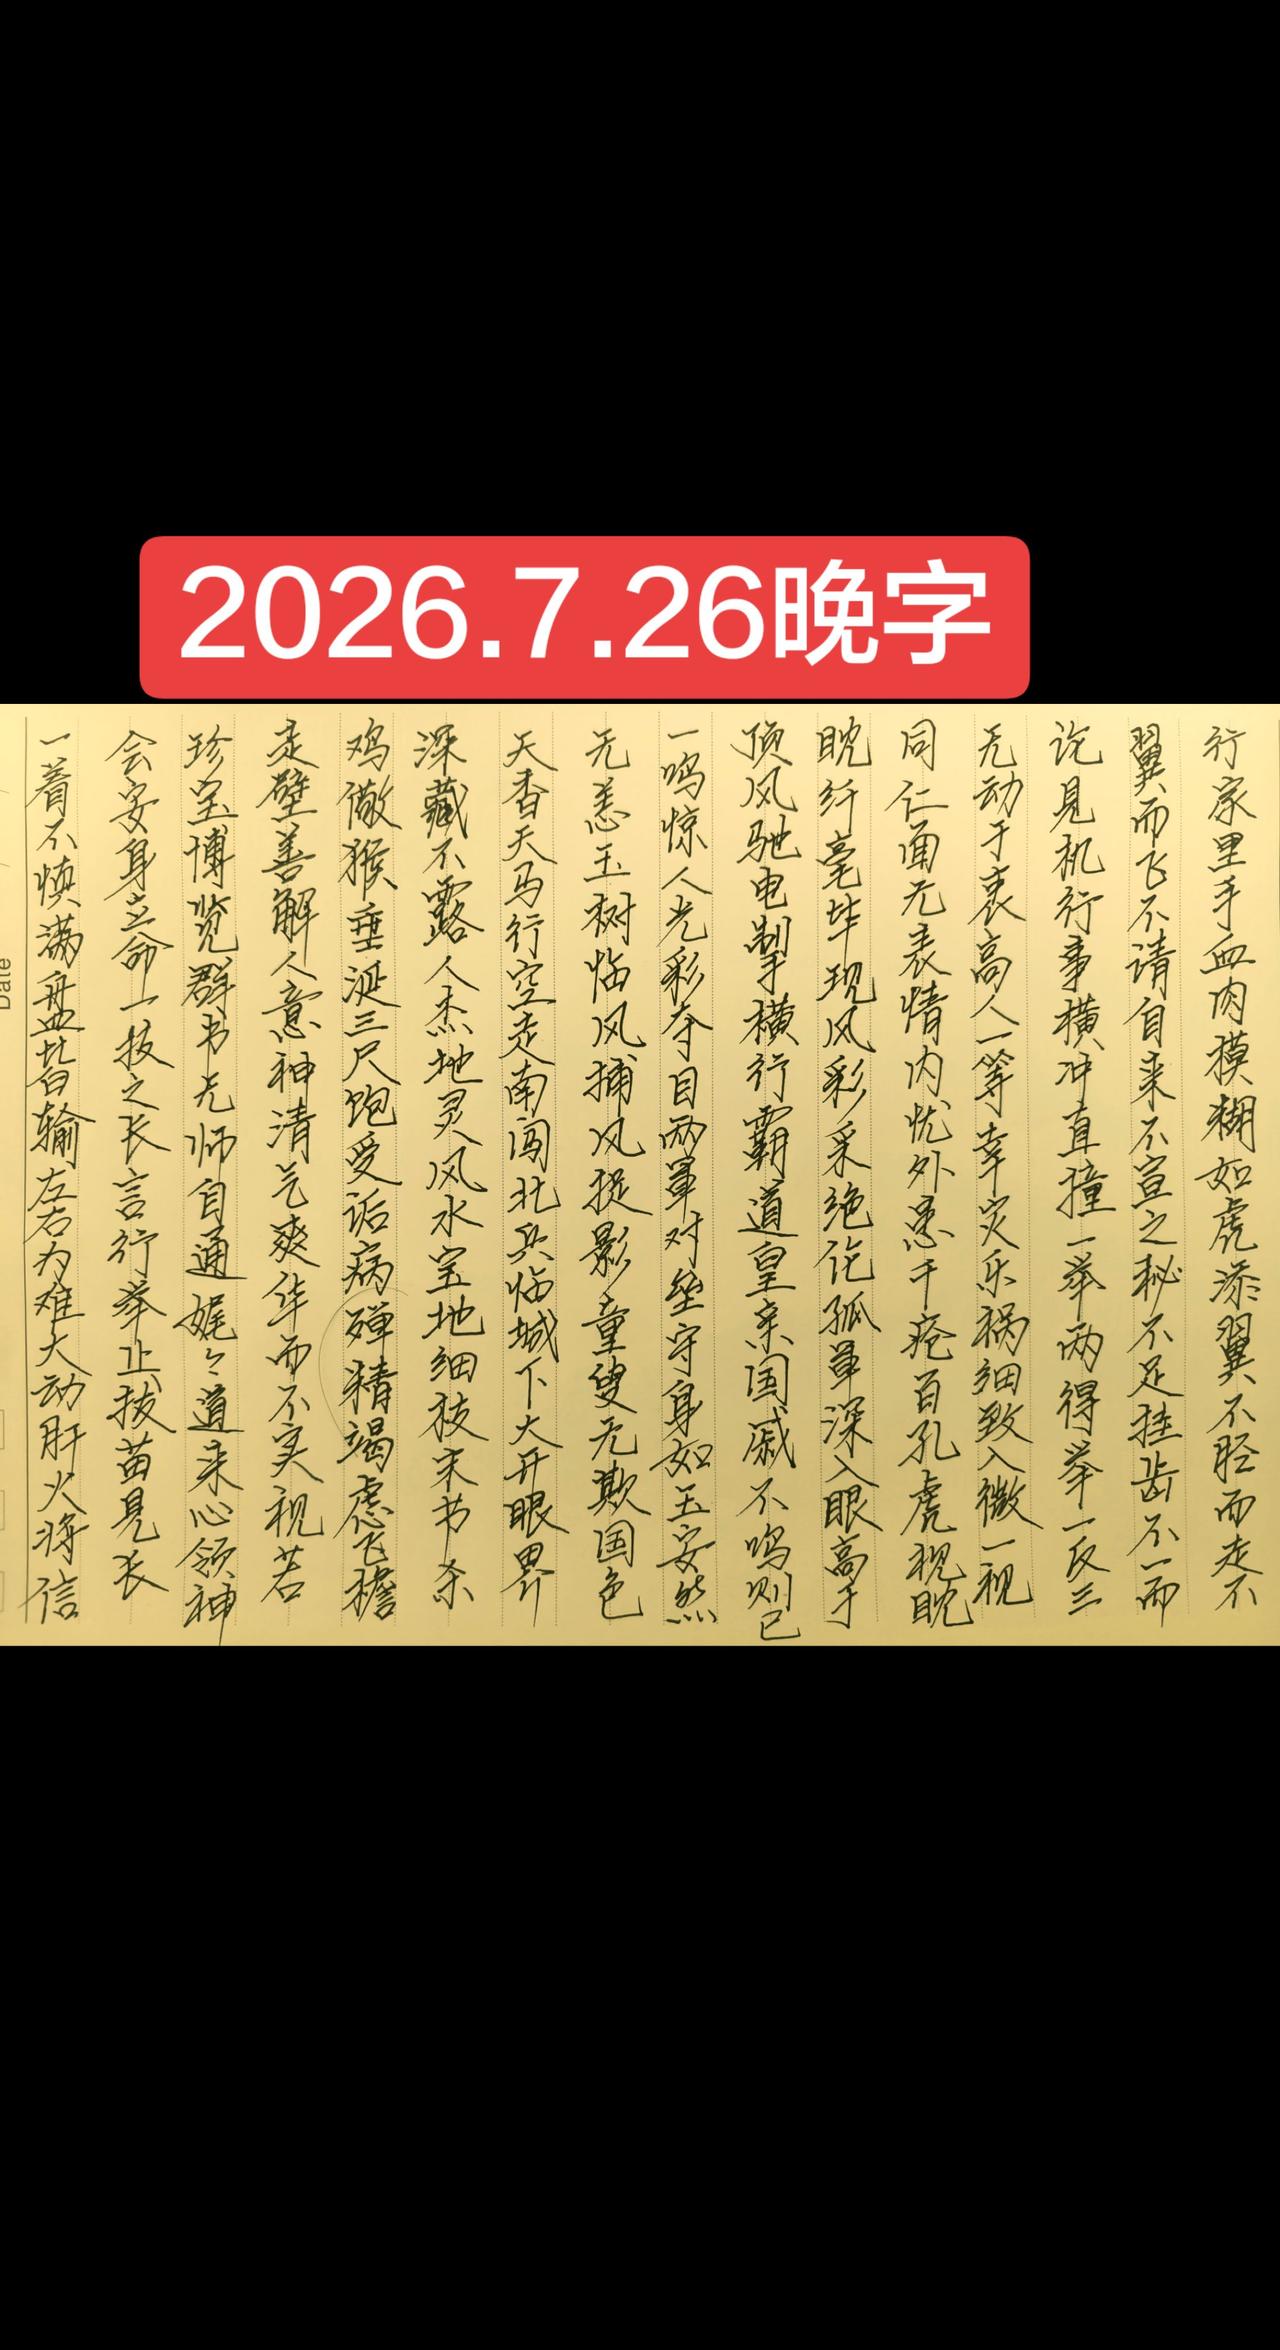 2026.7.26晚字
行家里手血肉模糊如虎添翼不胫而走不
翼而飞不请自来不宣之秘不足挂齿不一而
论见机行事横冲直撞一举两得举一反三
无动于衷高人一等幸灾乐祸细致入微一视
同仁面无表情内忧外患千疮百孔虎视眈
眈纤毫毕现风彩采绝伦孤军深入眼高于
顶风驰电掣横行霸道皇亲国戚不鸣则已
一鸣惊人光彩夺目两军对垒守身如玉安然
无恙玉树临风捕风捉影童叟无欺国色
天香天马行空走南闯北兵临城下大开眼界
深藏不露人杰地灵风水宝地细枝末节杀
鸡儆猴垂涎三尺饱受诟病殚精竭虑飞檐
走壁善解人意神清气爽华而不实视若
珍宝博览群书无师自通娓々道来心领神
会安身立命一技之长言行举止拔苗见长
一着不慎满盘皆输左右为难大动肝火将信
Date